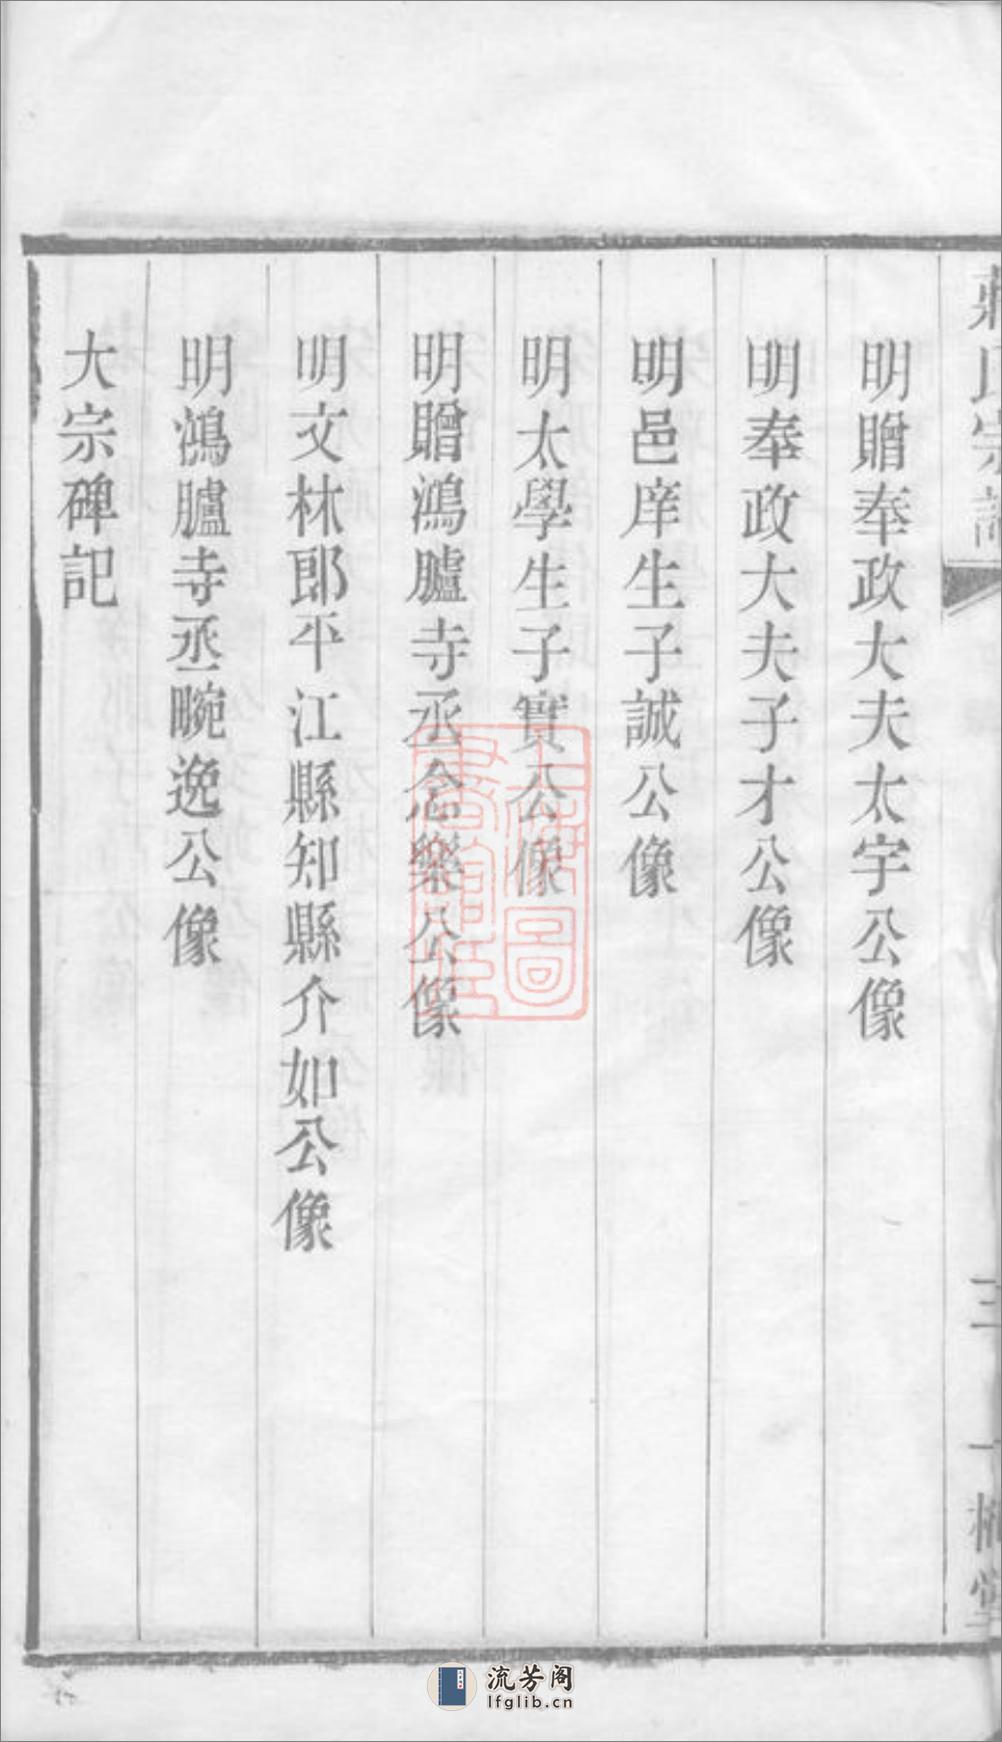 莊氏宗譜
三
一梅堂
明贈奉政大夫太宇公像
明奉政大夫子才公像
明邑庠生子誠公像
明太學生子實公像
明贈鴻臚寺丞念樂公像
明文林郎平江縣知縣介如公像
明鴻臚寺丞畹逸公像
大宗碑記
上海圖書館藏
流芳阁
lfglib.cn